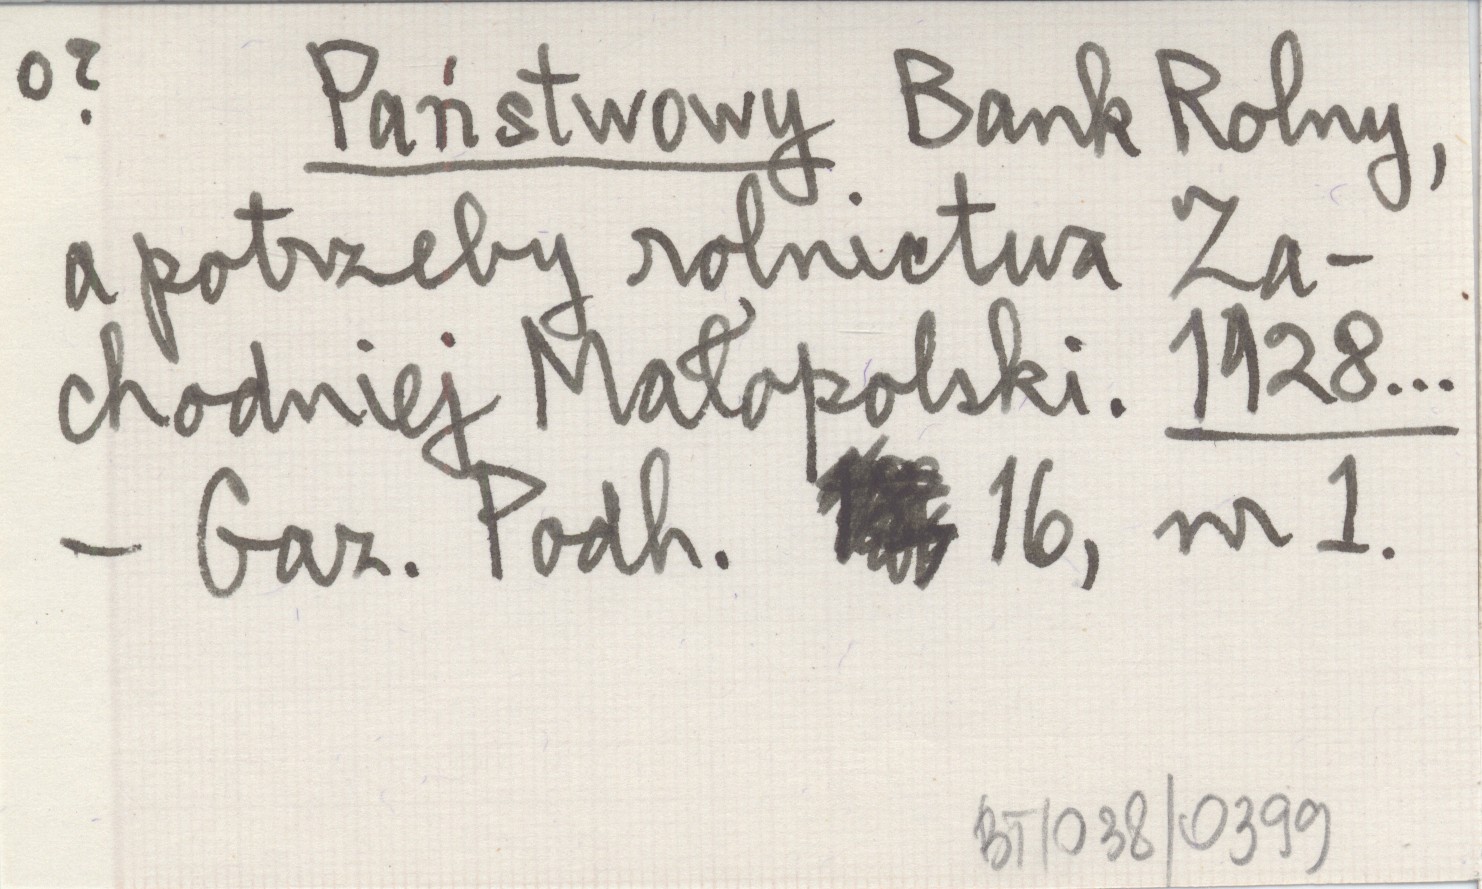 o?
Państwowy Bank Rolny,
a potrzeby rolnictwa Za-
chodniej Małopolski. 1928...
- Gaz. Podh. 16, nr 1.
BT/038/0399